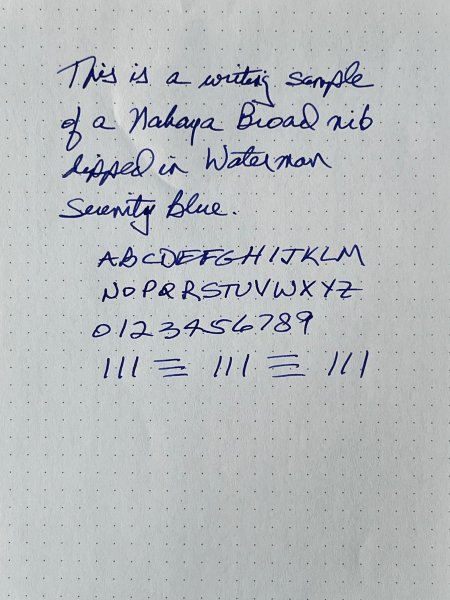 This is a writing sample
of a Nahaya Broad nib
dipped in Waterman
Serenity Blue.
ABCDEFGHIJKLM
NOPQRSTUVWXYZ
0123456789
111 ☰ 111 ☰ 111